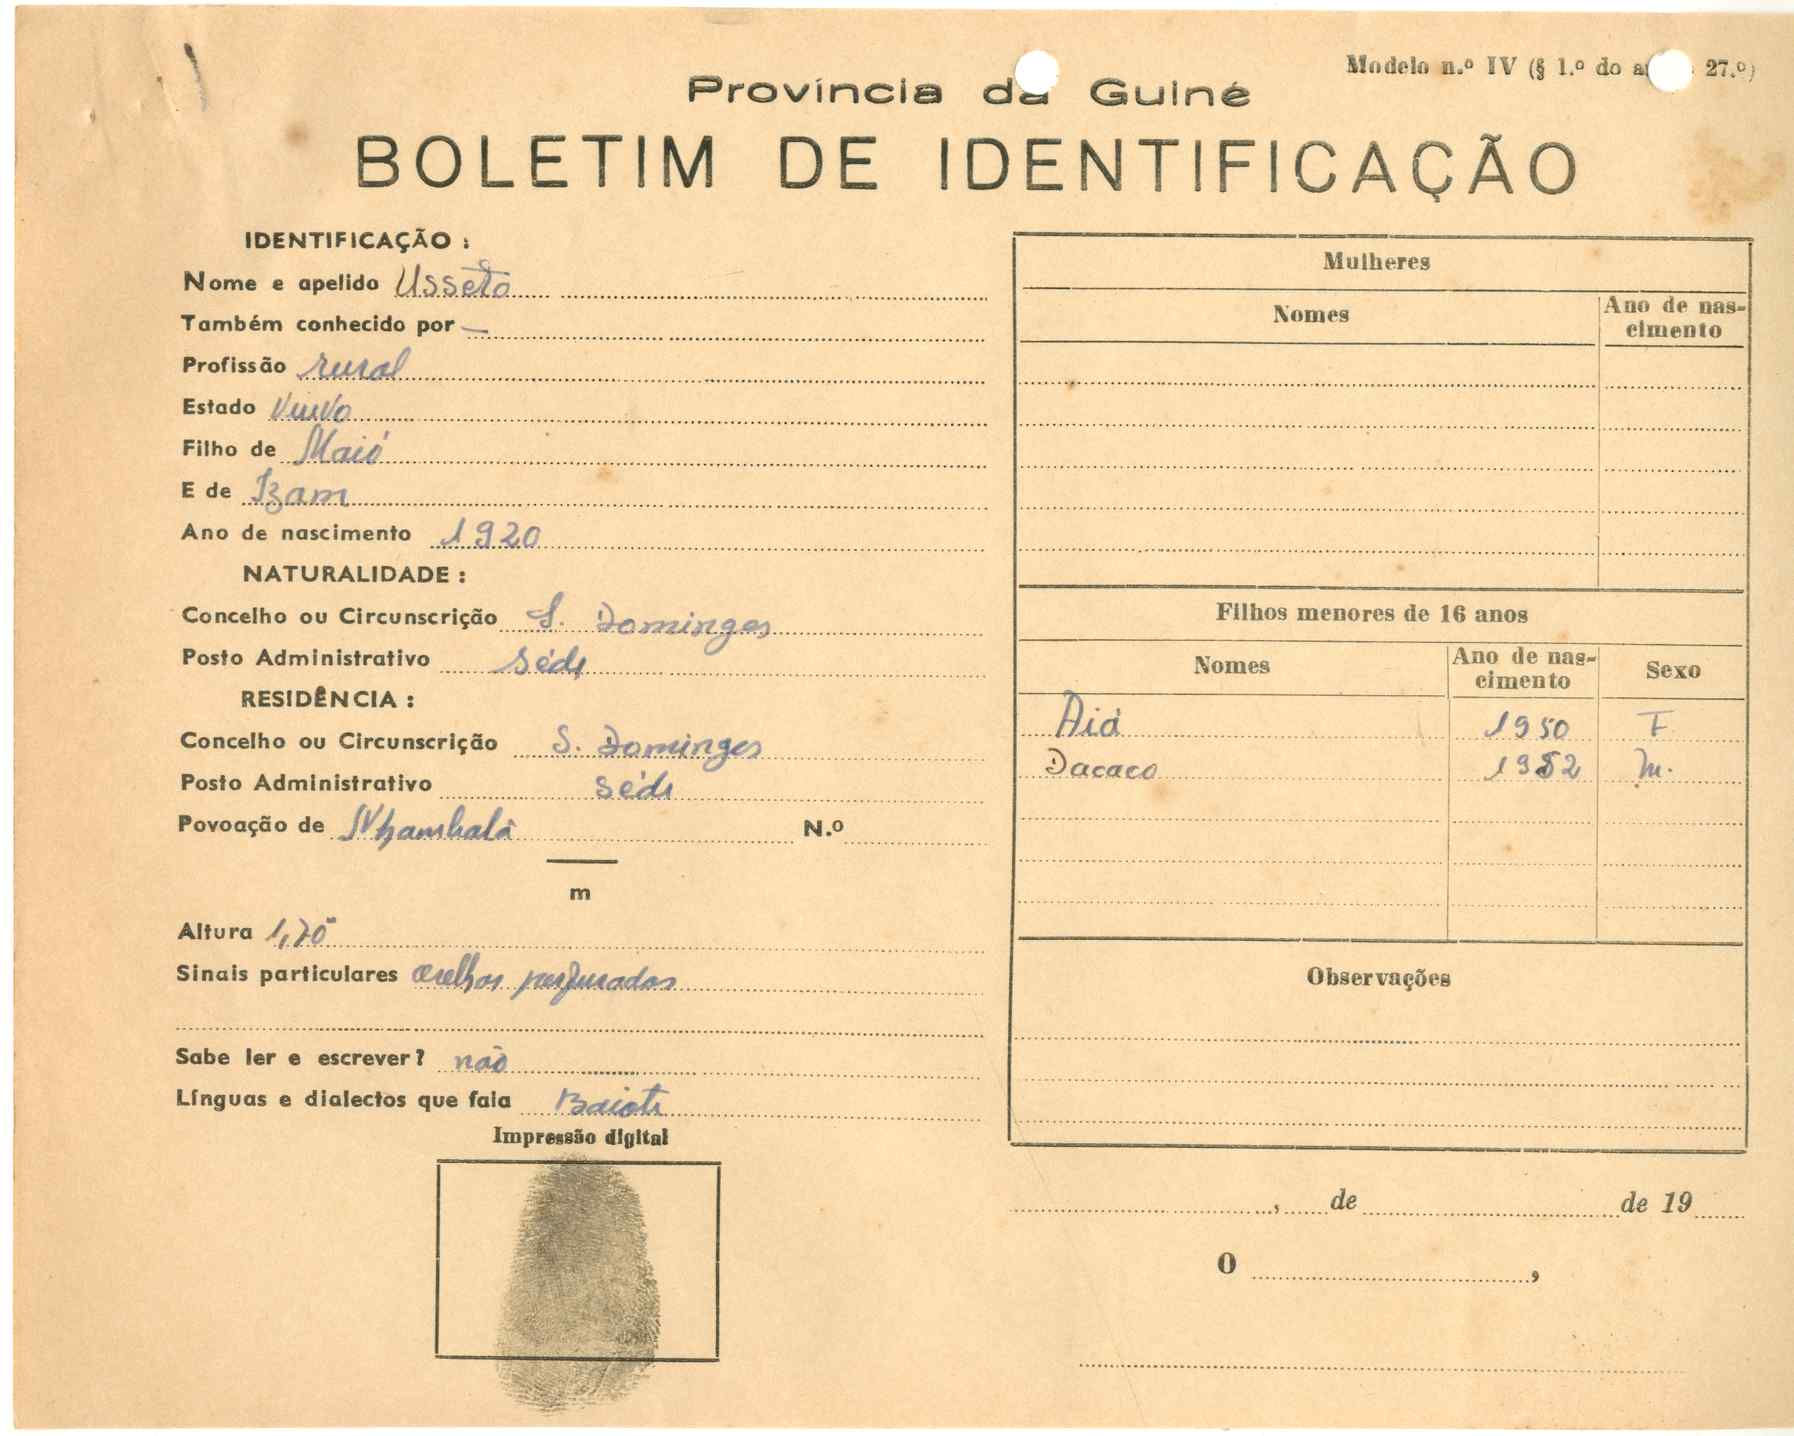 Modelo n.º IV (§ 1.º do a 27.º)
Província da Guiné
BOLETIM DE IDENTIFICAÇÃO
IDENTIFICAÇÃO :
Nome e apelido Usseto
Também conhecido por —
Profissão rural
Estado Viuvo
Filho de Maió
E de Izam
Ano de nascimento 1920
NATURALIDADE :
Concelho ou Circunscrição S. Domingos
Posto Administrativo Séde
RESIDÊNCIA :
Concelho ou Circunscrição S. Domingos
Posto Administrativo Séde
Povoação de N.º
m
Altura 1,70
Sinais particulares orelhas perfuradas
Sabe ler e escrever? não
Línguas e dialectos que fala Baiote
Impressão digital
Mulheres
Nomes Ano de nas-
cimento
Filhos menores de 16 anos
Nomes Ano de nas-
cimento Sexo
Aiá 1950 F
Dacaco 1952 M.
Observações
, de de 19
O ,